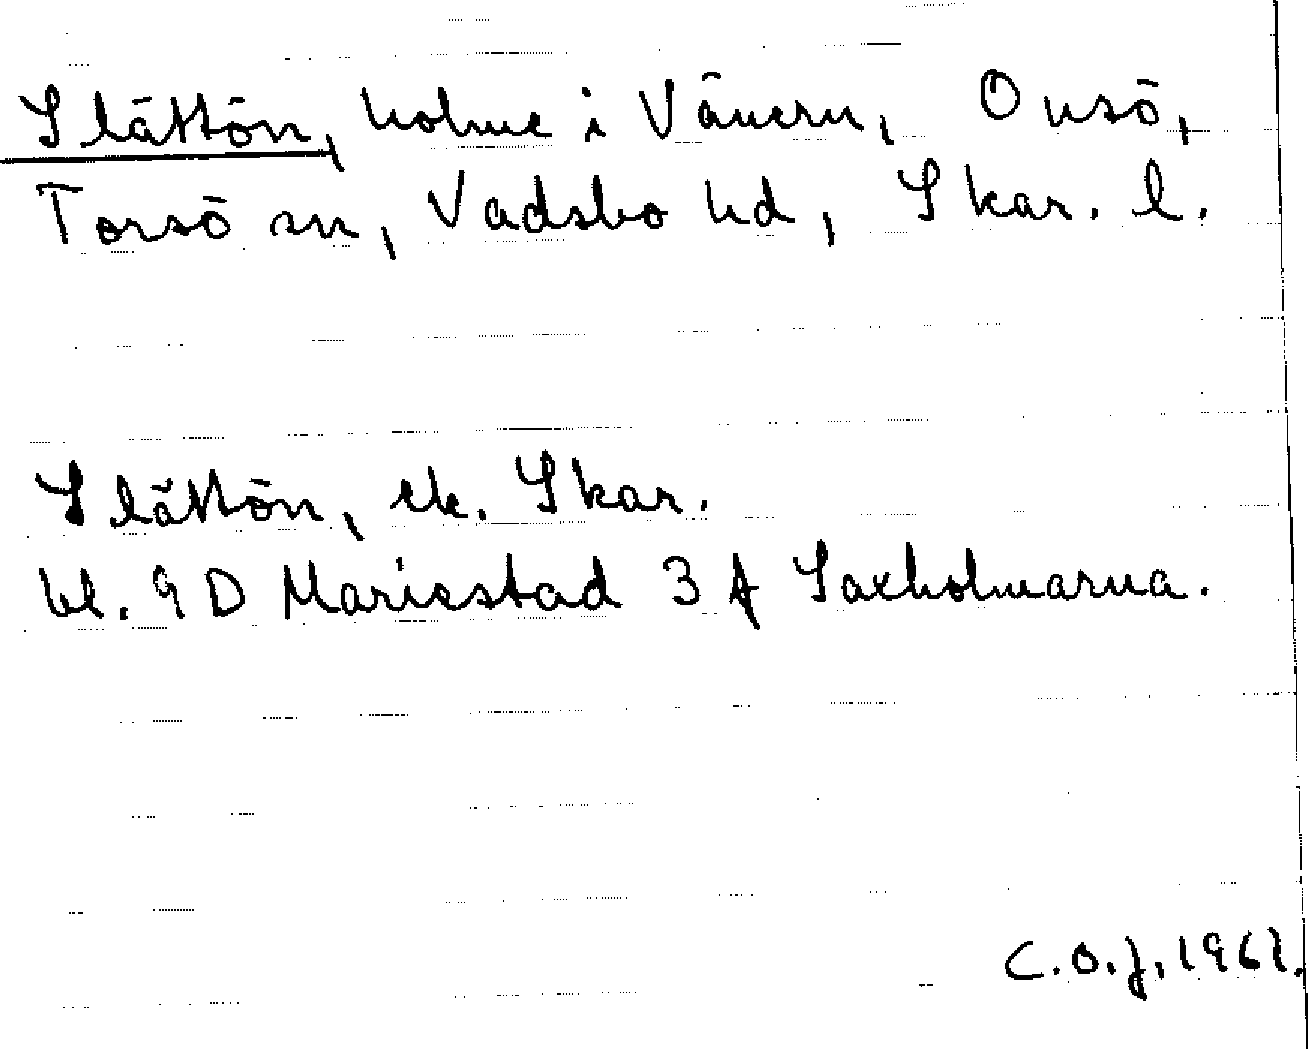 Slättön, holme i Vänern, Onsö,
Torsö sn, Vadsbo hd, Skar. l.
Slättön, ek. Skar.
bl. 9 D Mariestad 3 f Saxholmarna.
C.O.J. 1961.